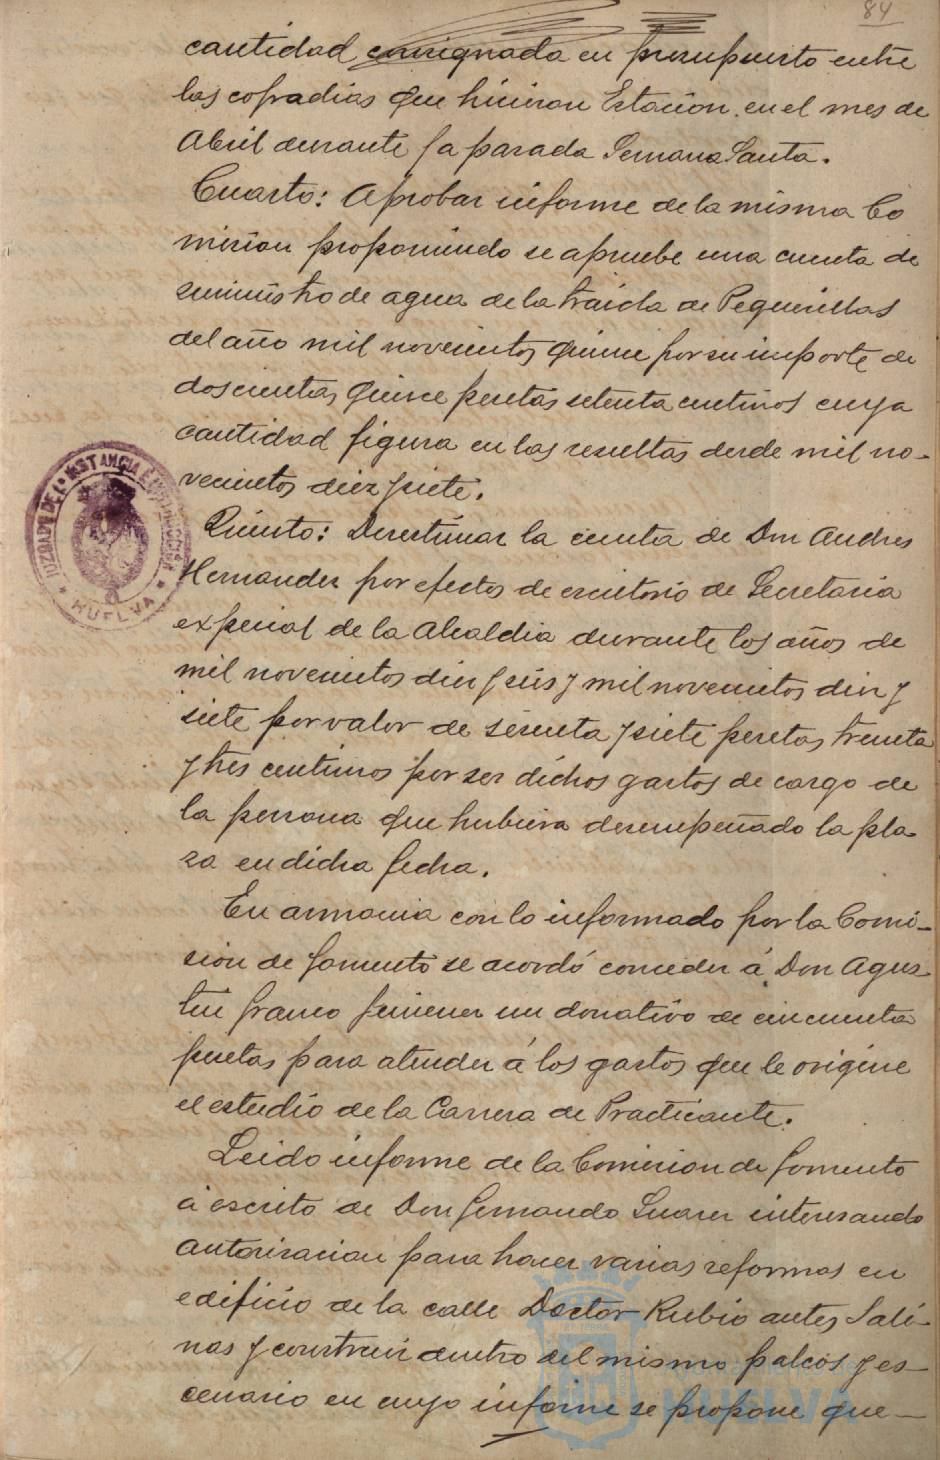 84
cantidad consignada en presupuesto entre
las cofradias que hicieron Estacion en el mes de
Abril durante la pasada Semana Santa.
Cuarto: Aprobar informe de la misma Co
mision proponiendo se apruebe una cuenta de
suministro de agua de la traida de Peguerillas
del año mil novecientos quince por su importe de
doscientas quince pesetas setenta centimos cuya
cantidad figura en las resultas desde mil no-
vecientos diez y siete.
Quinto: Desestimar la cuenta de Don Andres
Hernandez por efectos de escritorio de Secretaria
especial de la Alcaldia durante los años de
mil novecientos diez y seis y mil novecientos diez y
siete por valor de sesenta y siete pesetas, treinta
y tres centimos por ser dichos gastos de cargo de
la persona que hubiera desempeñado la pla-
za en dicha fecha.
En armonia con lo informado por la Comi-
sion de fomento se acordó conceder á Don Agus-
tin Franco Jimenez un donativo de cincuenta
pesetas para atender á los gastos que le origine
el estudio de la Carrera de Practicante.
Leido informe de la Comision de fomento
á escrito de Don Fernando Suarez interesando
autorizacion para hacer varias reformas en
edificio de la calle Doctor Rubio antes Sali-
nas y construir dentro del mismo palcos y es-
cenario en cuyo informe se propone que-
JUZGADO DE 1ª INSTANCIA E INSTRUCCION
HUELVA
HUELVA